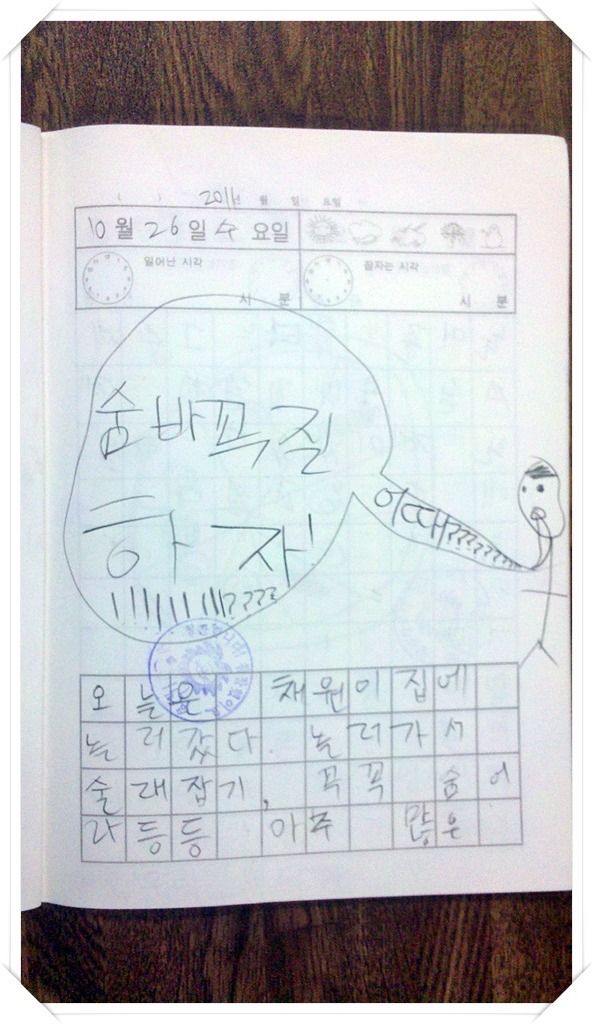 2011년 월 일 요일
10월 26일 수요일
일어난 시각
시 분
잠자는 시각
시 분
숨바꼭질
하자!
!!!!!!!!!????
어때????????
오늘은 채원이 집에
놀러갔다 놀러가서
술래잡기, 꼭꼭 숨어
라 등등 아주 많은